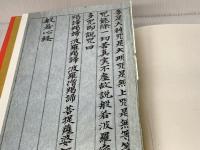 多是大神咒是大明咒是無上咒是無等等
咒能除一切苦真實不虚故説般若波羅
多咒即説咒曰
羯諦羯諦波羅羯諦波羅僧羯諦菩提薩婆
般若心経